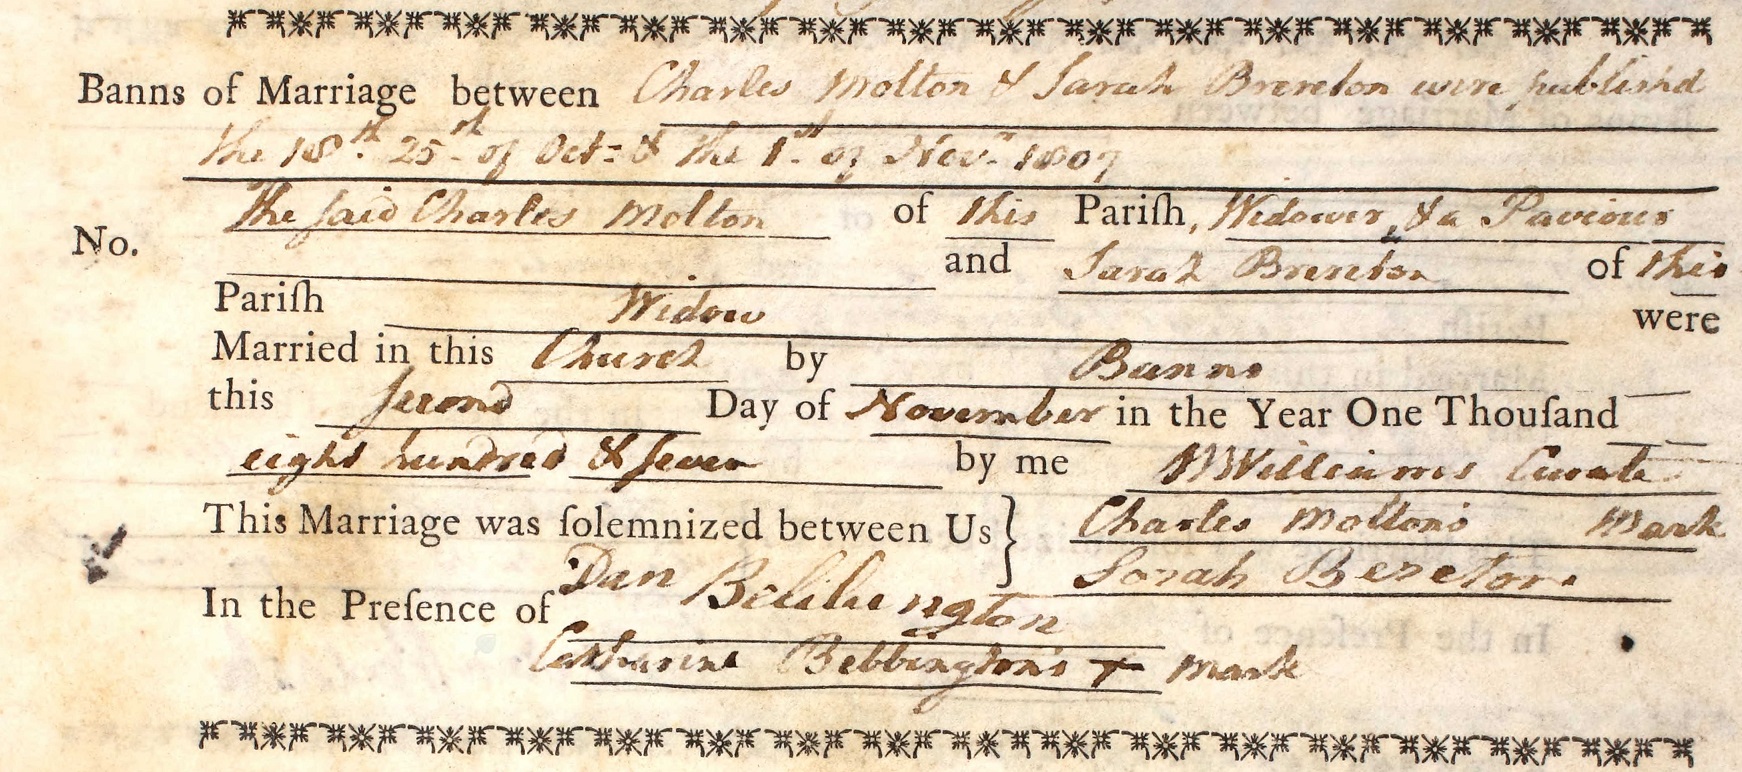 Banns of Marriage between Charles Molton & Sarah Brereton were published
the 18th. 25th of Oct: & the 1st of Novr. 1807
The said Charles Molton of this Pariſh, Widower, & a Paviour
No. and Sarah Brereton of this
Pariſh Widow were
Married in this Church by Banns
this Second Day of November in the Year One Thouſand
eight hundred & Seven by me Williams Curate
This Marriage was ſolemnized between Us } Charles Molton's Mark
Sarah Beretor
In the Preſence of Dan Bebbington
Catharine Bebbington's + Mark